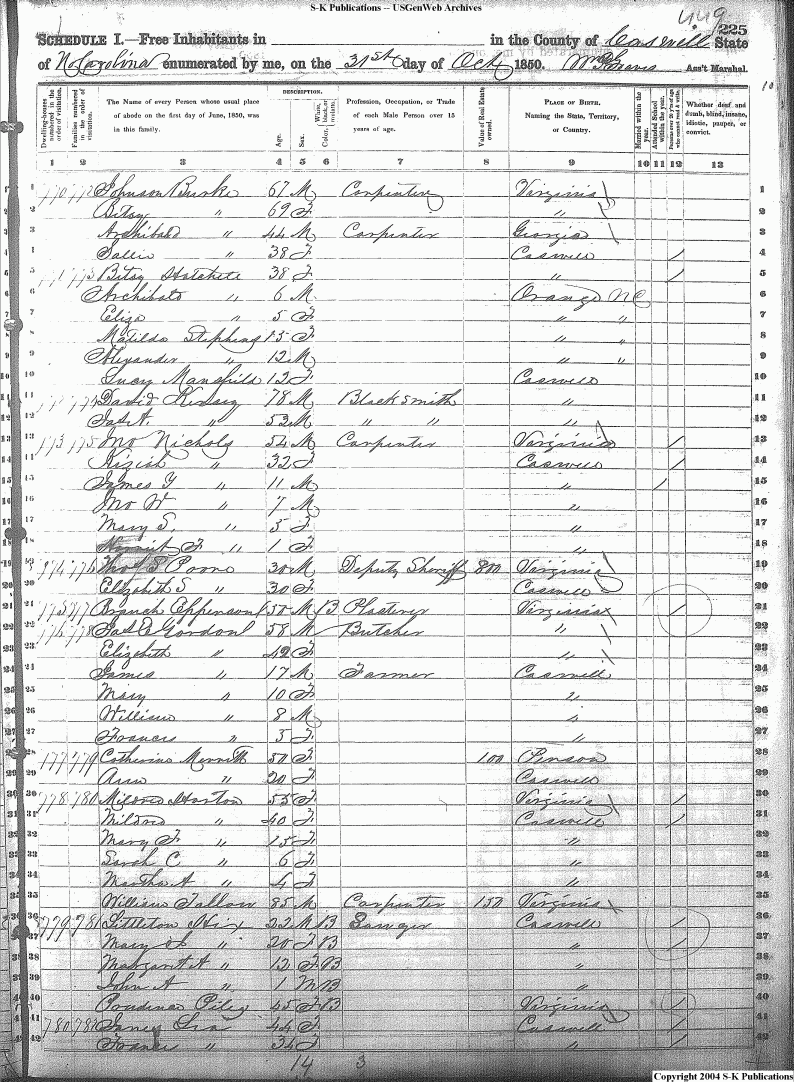 S-K Publications -- USGenWeb Archives
449
225
SCHEDULE I.—Free Inhabitants in in the County of Caswell State
of No Carolina enumerated by me, on the 31st day of Oct 1850. Ass't Marshal.
10
DESCRIPTION.
Dwelling-houses numbered in the order of visitation.
Families numbered in the order of visitation.
The Name of every Person whose usual place of abode on the first day of June, 1850, was in this family.
Age.
Sex.
White, black, or mulatto.
Color,
Profession, Occupation, or Trade of each Male Person over 15 years of age.
Value of Real Estate owned.
PLACE OF BIRTH. Naming the State, Territory, or Country.
Married within the year.
Attended School within the year.
Persons over 20 y'rs of age who cannot read & write.
Whether deaf and dumb, blind, insane, idiotic, pauper, or convict.
1 2 3 4 5 6 7 8 9 10 11 12 13
1 770 772 Johnson Burke 67 M Carpenter Virginia 1
2 Bitsy " 69 F " 2
3 Archibald " 44 M Carpenter Georgia 3
4 Sallie " 38 F Caswell / 4
5 771 773 Bitsy Hatchett 38 F " / 5
6 Archibald " 6 M Orange NC 6
7 Eliza " 5 F " " 7
8 Matilda Stephens 15 F " " 8
9 Alexander " 12 M " " 9
10 Lucy Mansfield 12 F Caswell 10
11 David Kersey 78 M Blacksmith " 11
12 Jas A. " 53 M " " " 12
13 773 775 Jno Nichols 54 M Carpenter Virginia / 13
14 Kizish " 32 F Caswell / 14
15 James Y " 11 M " / 15
16 Jno W " 7 M " 16
17 Mary S. " 5 F " 17
18 F " 1 F " 18
19 774 776 Thos S Poore 30 M Deputy Sheriff 800 Virginia 19
20 Elizabeth S " 30 F Caswell 20
21 775 777 Branch Epperson 50 M B Plasterer Virginia / 21
22 776 778 Jas E Gordon 58 M Butcher " 22
23 Elizabeth " 42 F " 23
24 James " 17 M Farmer Caswell 24
25 Mary " 10 F " 25
26 William " 8 M " 26
27 Frances " 3 F " 27
28 777 779 Catherine Merritt 50 F 100 Person 28
29 Ann " 20 F Caswell 29
30 778 780 Mildred Horton 55 F Virginia / 30
31 Mildred " 40 F Caswell / 31
32 Mary F " 15 F " 32
33 Sarah C " 6 F " 33
34 Martha A " 4 F " 34
35 William Fallow 85 M Carpenter 150 Virginia 35
36 779 781 Littleton Hix 22 M B Sawyer Caswell / 36
37 Mary " 20 F B " / 37
38 Margaret A " 12 F B " 38
39 John A " 1 M B " 39
40 Piles 45 F B Virginia / 40
41 780 782 44 F Caswell / 41
42 Frances " 34 F " / 42
14 3
Copyright 2004 S-K Publications